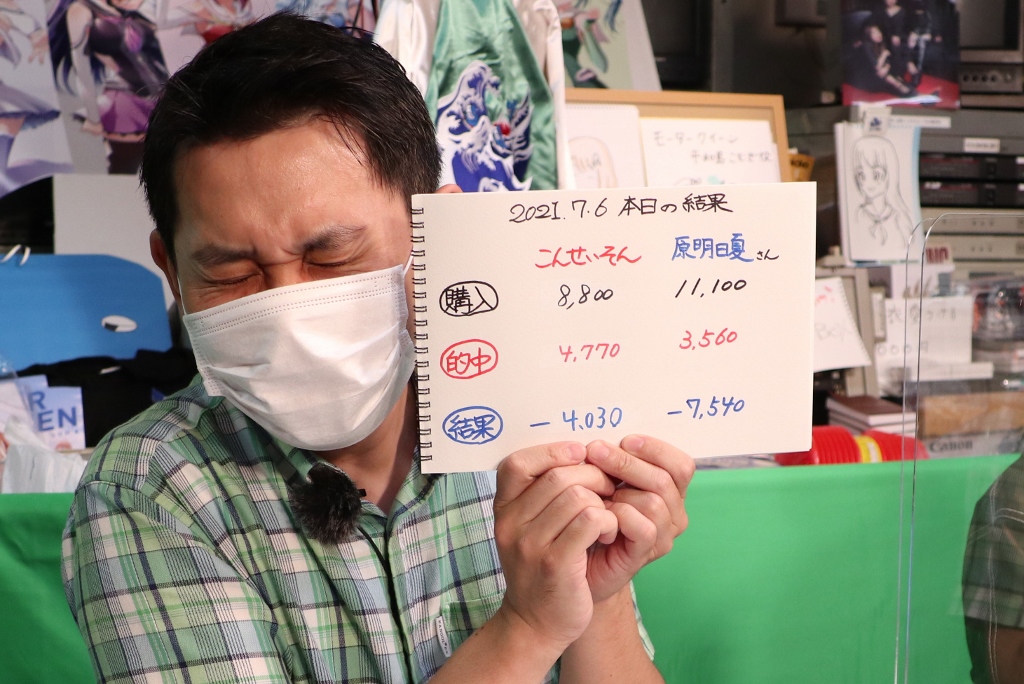 モータークイーン
平和島ことせ役
2021.7.6 本日の結果
こんせいそん 原明日夏さん
購入 8,800 11,100
的中 4,770 3,560
結果 -4,030 -7,540
R
EN
Canon